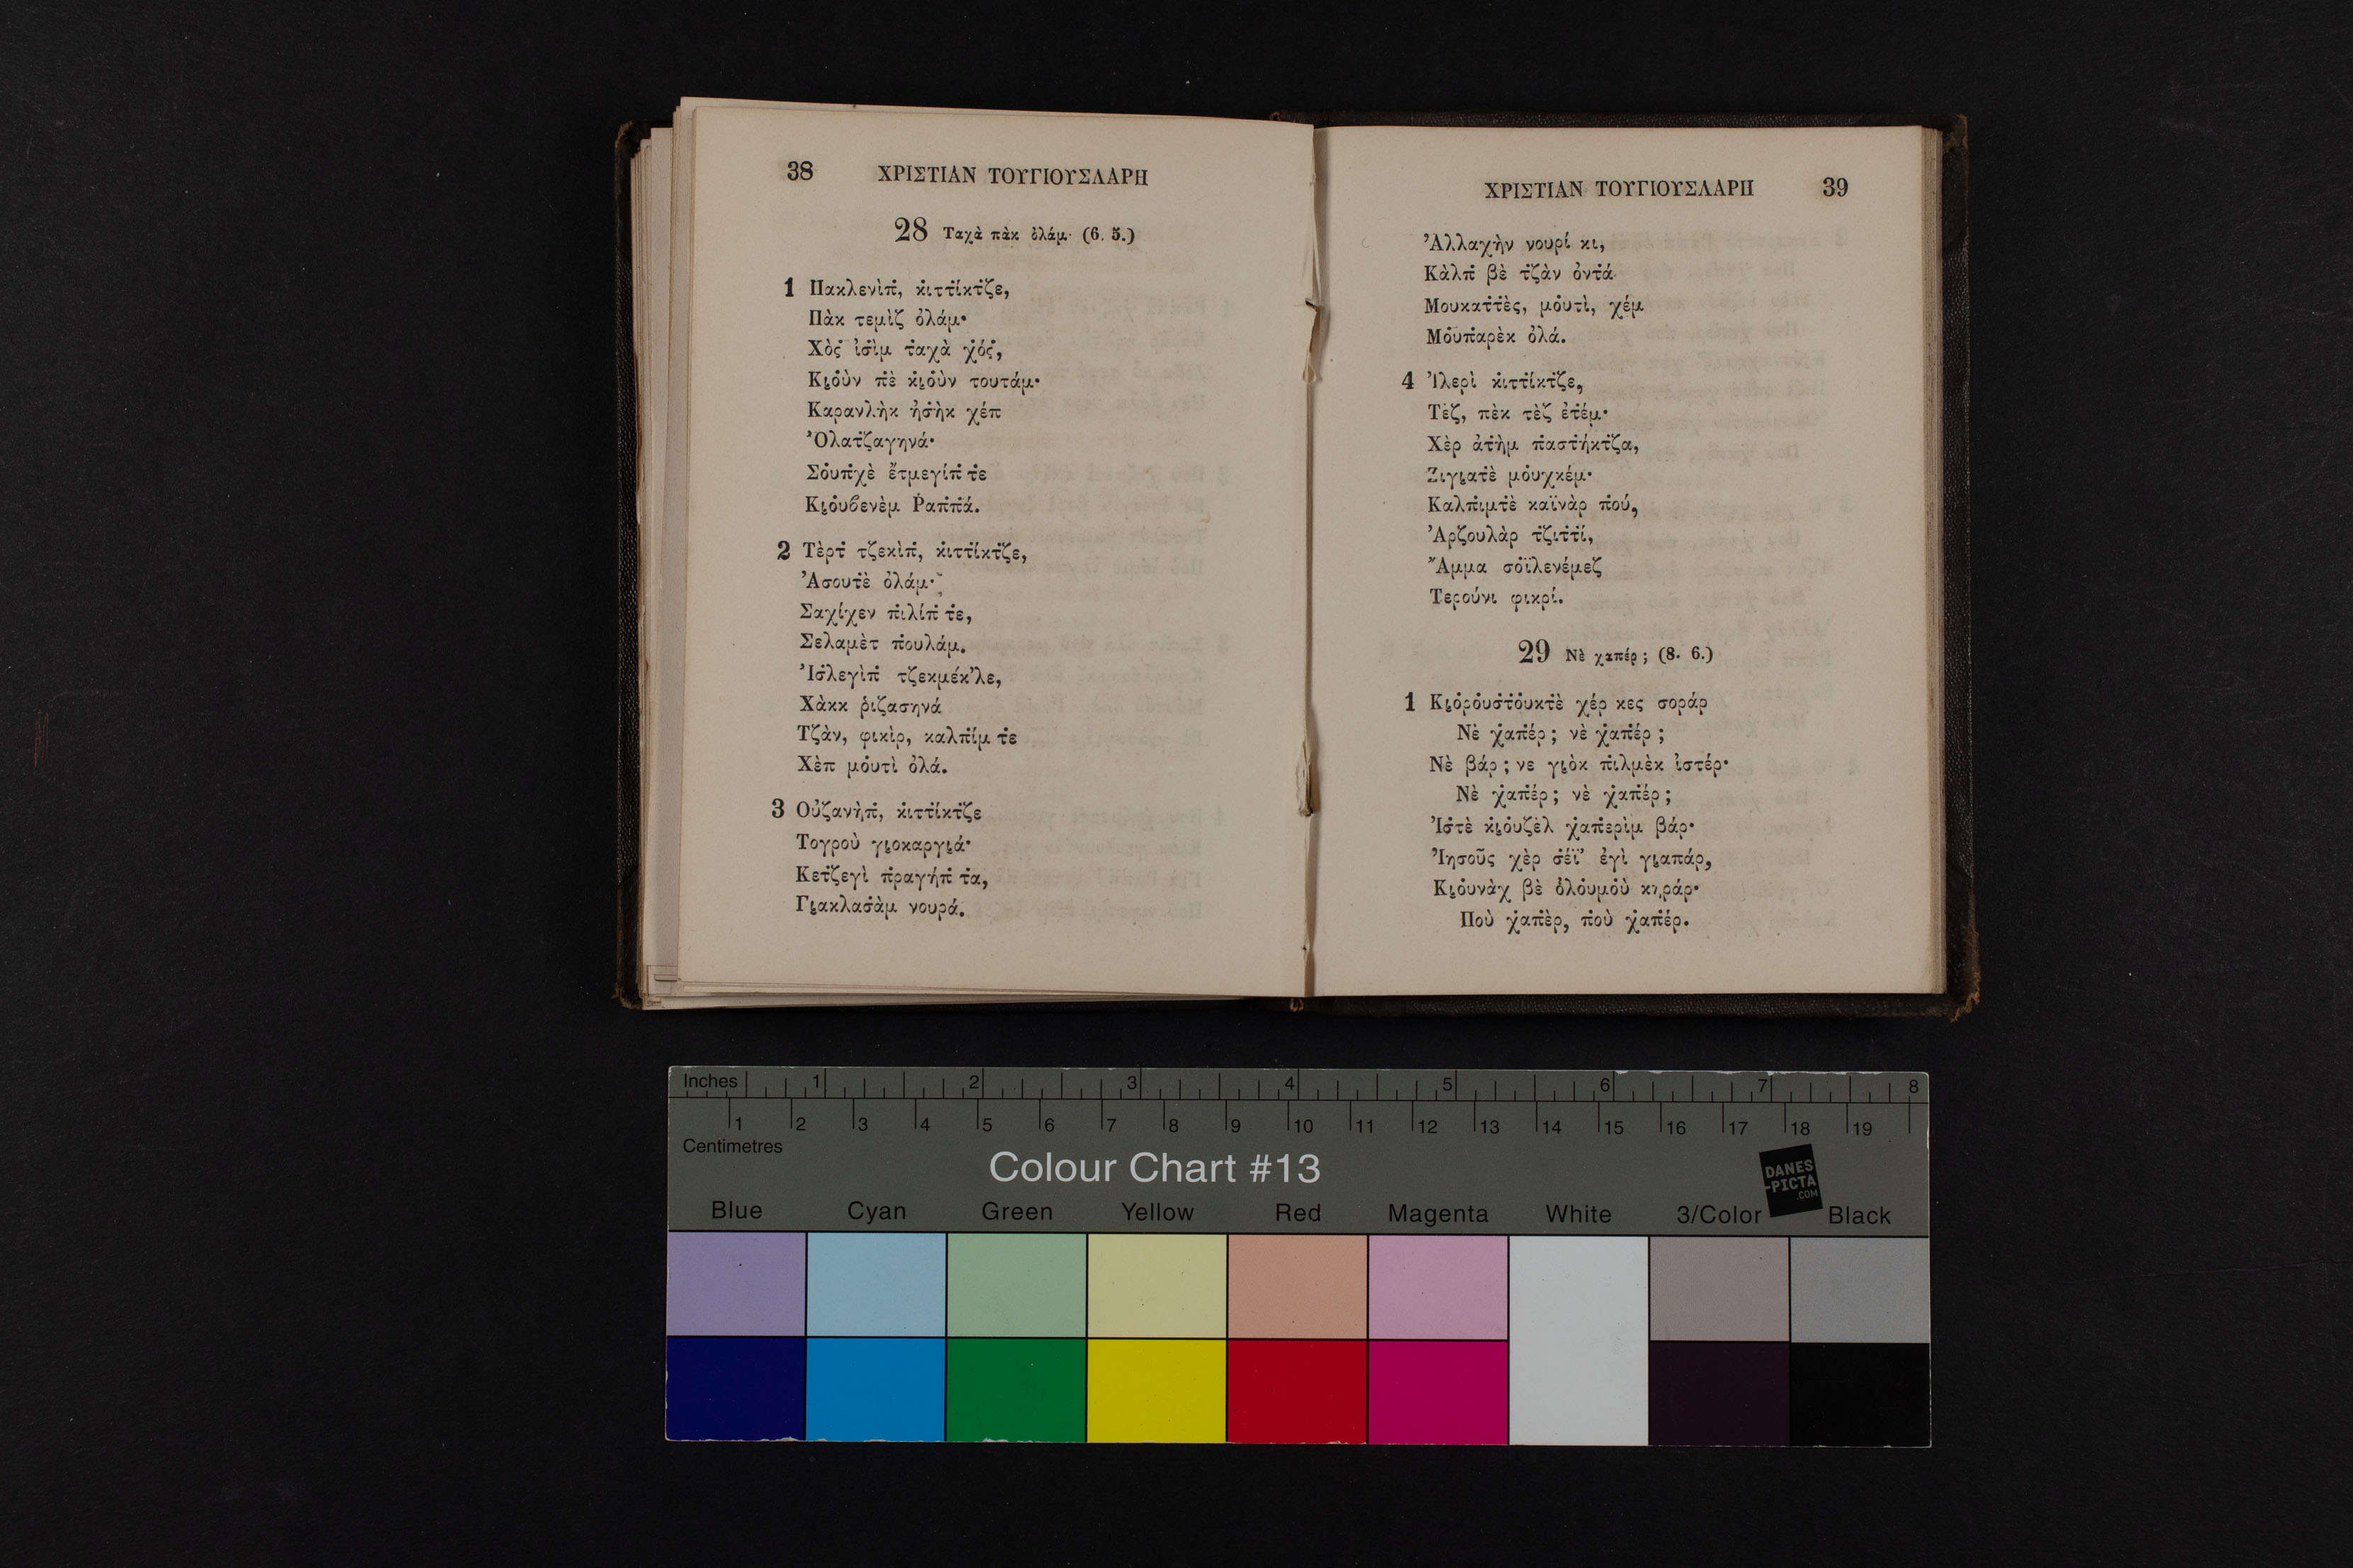 38 ΧΡΙΣΤΙΑΝ ΤΟΥΓΙΟΥΣΛΑΡΗ
28 Ταχὰ πὰκ ὀλάμ· (6. 5.)
1 Πακλενὶπ̇, κ̇ιτ̇τ̇ίκτ̇ζε,
Πὰκ τεμὶζ ὀλάμ·
Χὸς̇ ἰσ̇ὶμ τ̇αχὰ χ̇ός̇,
Κι̯ὀὺν πὲ κ̇ι̯ὀὺν τουτάμ·
Καρανλὴκ ἠσ̇ὴκ χέπ
Ὀλατζαγηνά·
Σὀυπ̇χὲ ἔτμεγίπ̇ τε
Κι̯ὀυβενὲμ Ῥαπ̇π̇ά.
2 Τὲρτ̇ τζεκὶπ̇, κ̇ιτ̇τ̇ίκτ̇ζε,
Ἀσουτ̇ὲ ὀλάμ·
Σαχίχεν π̇ιλίπ̇ τ̇ε,
Σελαμὲτ π̇ουλάμ.
Ἰσ̇λεγὶπ̇ τζεκμέκ'λε,
Χὰκκ ῥιζασηνά
Τζὰν, φικὶρ, καλπ̇ίμ τ̇ε
Χὲπ μὀυτὶ ὀλά.
3 Οὐζανὴπ̇, κ̇ιτ̇τ̇ίκτ̇ζε
Τογροὺ γι̯οκαργι̯ά·
Κετ̇ζεγὶ π̇ραγήπ̇ τ̇α,
Γι̯ακλασ̇ὰμ νουρά.
ΧΡΙΣΤΙΑΝ ΤΟΥΓΙΟΥΣΛΑΡΗ 39
Ἀλλαχὴν νουρί κι,
Κὰλπ̇ βὲ τ̇ζὰν ὀντ̇ά
Μουκατ̇τ̇ὲς, μὀυτὶ, χέμ
Μὀυπ̇αρὲκ ὀλά.
4 Ἰλερὶ κ̇ιτ̇τ̇ίκτ̇ζε,
Τὲζ, πὲκ τὲζ ἐτ̇έμ·
Χὲρ ἀτ̇ὴμ π̇αστ̇ήκτ̇ζα,
Ζιγι̯ατ̇ὲ μὀυχκέμ·
Καλπ̇ιμτ̇ὲ καϊνὰρ π̇ού,
Ἀρζουλὰρ τ̇ζιτ̇τ̇ί,
Ἄμμα σὀϊλενέμεζ
Τερούνι φικρί.
29 Νὲ χαπέρ; (8. 6.)
1 Κι̯ὀρὀυστ̇ὀυκτ̇ὲ χέρ κες σοράρ
Νὲ χ̇απ̇έρ; νὲ χ̇απ̇έρ;
Νὲ βάρ; νε γι̯ὸκ π̇ιλμὲκ ἰστέρ·
Νὲ χ̇απ̇έρ; νὲ χ̇απ̇έρ;
Ἰσ̇τὲ κ̇ι̯ὀυζὲλ χ̇απ̇ερὶμ βάρ·
Ἰησοῦς χὲρ σ̇έϊ' ἐγὶ γι̯απάρ,
Κι̯ὀυνὰχ βὲ ὀλὀυμὀὺ κηράρ·
Ποὺ χ̇απ̇ὲρ, π̇οὺ χ̇απ̇έρ.
Inches 1 2 3 4 5 6 7 8
1 2 3 4 5 6 7 8 9 10 11 12 13 14 15 16 17 18 19
Centimetres
Colour Chart #13
DANES
-PICTA
.COM
Blue Cyan Green Yellow Red Magenta White 3/Color Black